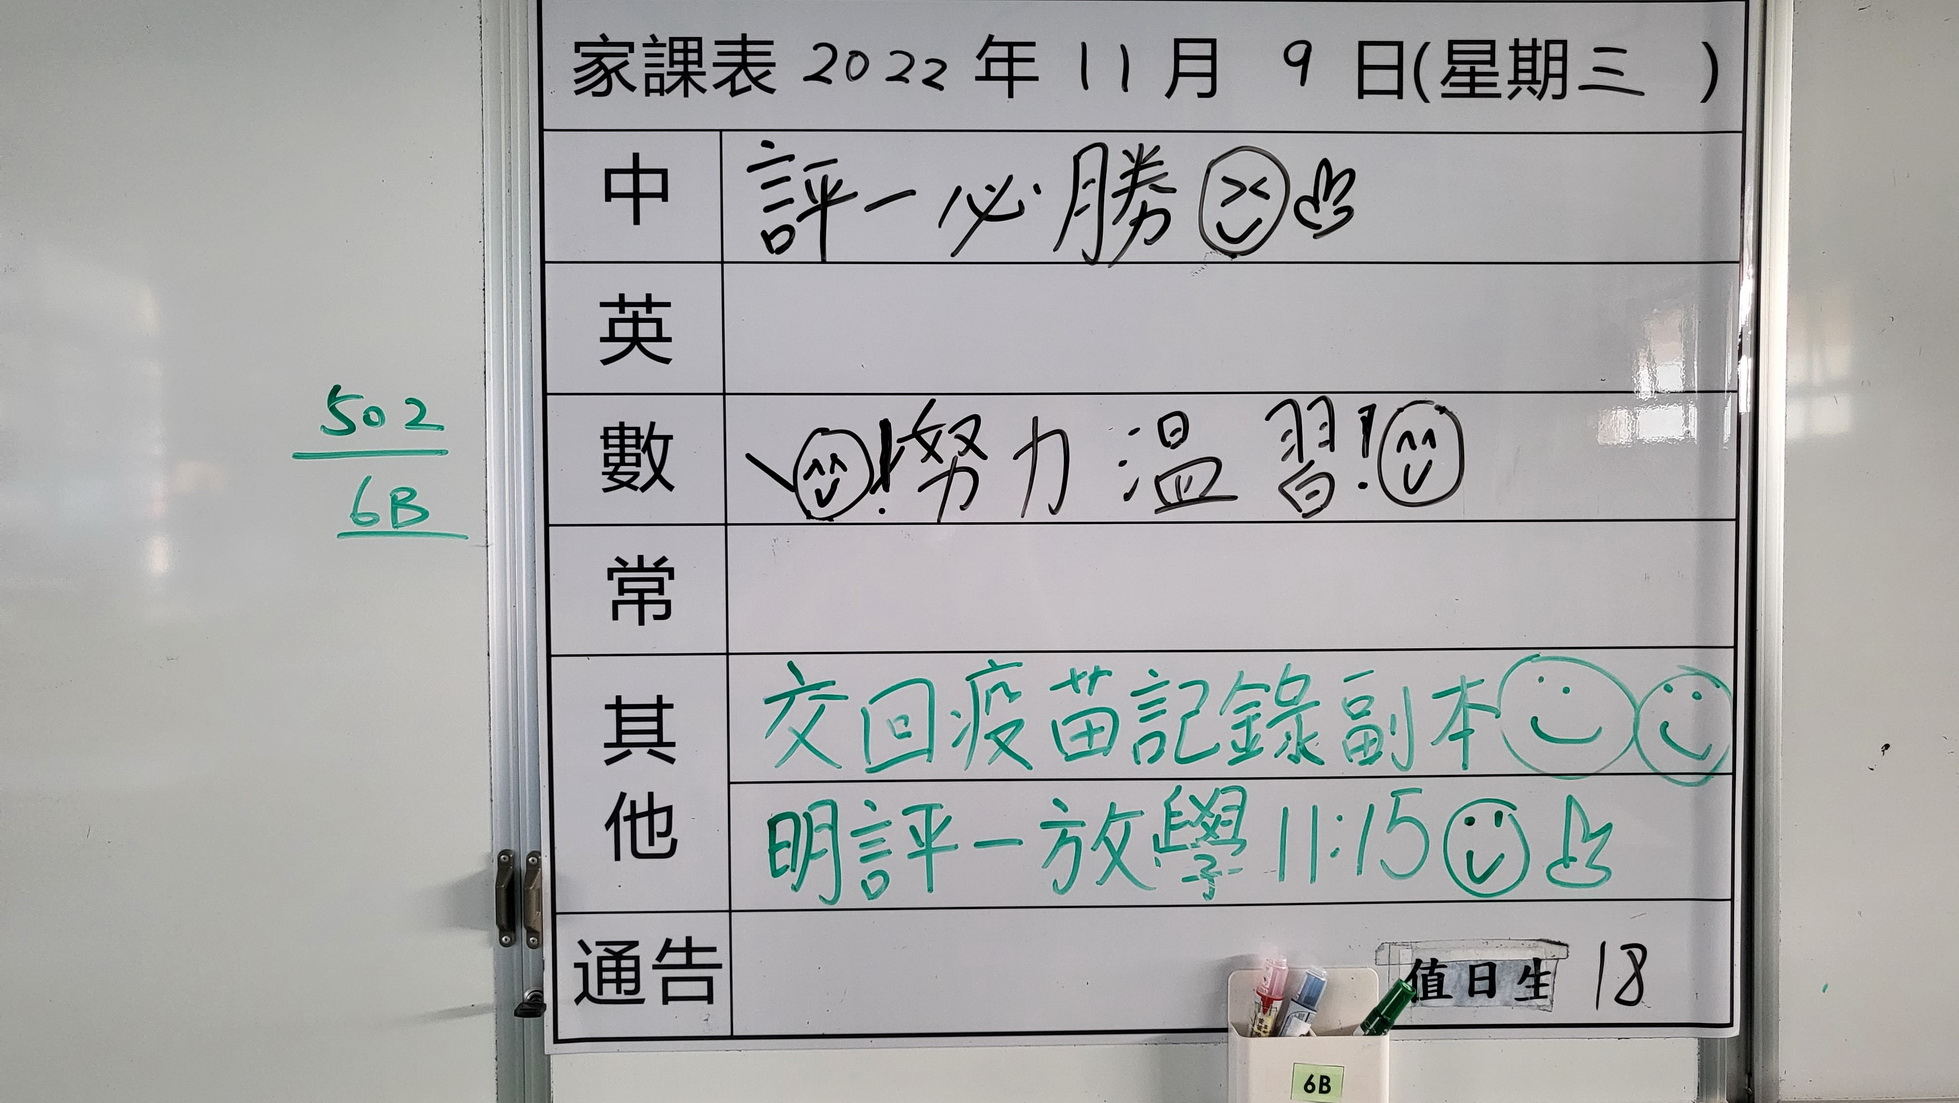 家課表 2022 年 11 月 9 日(星期三 )
中 評一必勝
英
數 ! 努力溫習!
502
6B
常
其他 交回疫苗記錄副本
明評一放學11:15
通告 值日生 18
6B